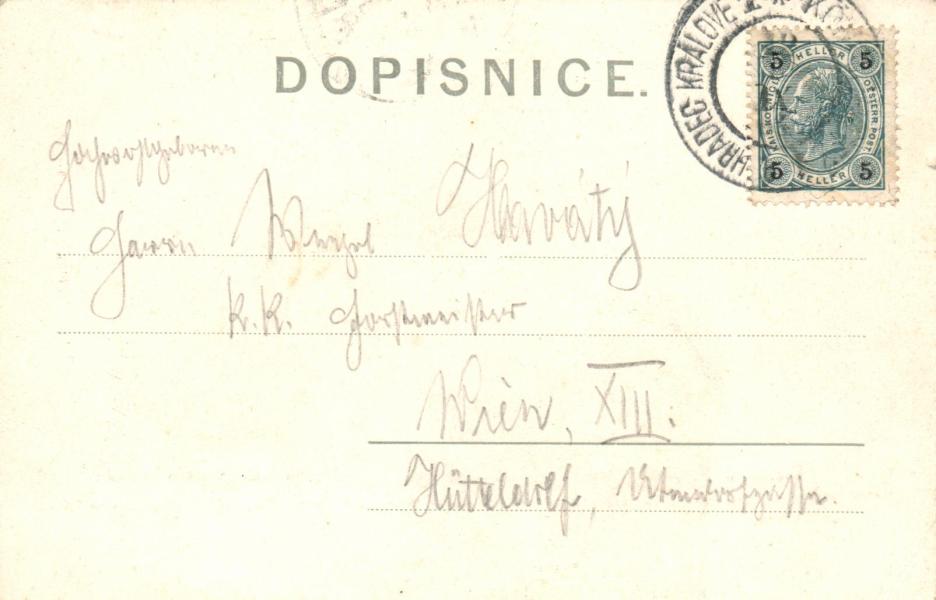 DOPISNICE.
HRADEC KRÁLOVÉ
5 HELLER 5
KAIS. KÖNIGL. OESTERR. POST.
5 HELLER 5
Hochwohlgeboren
Herrn Havátij
K.K. Forstmeister
Wien, XIII.
Hütteldorf,